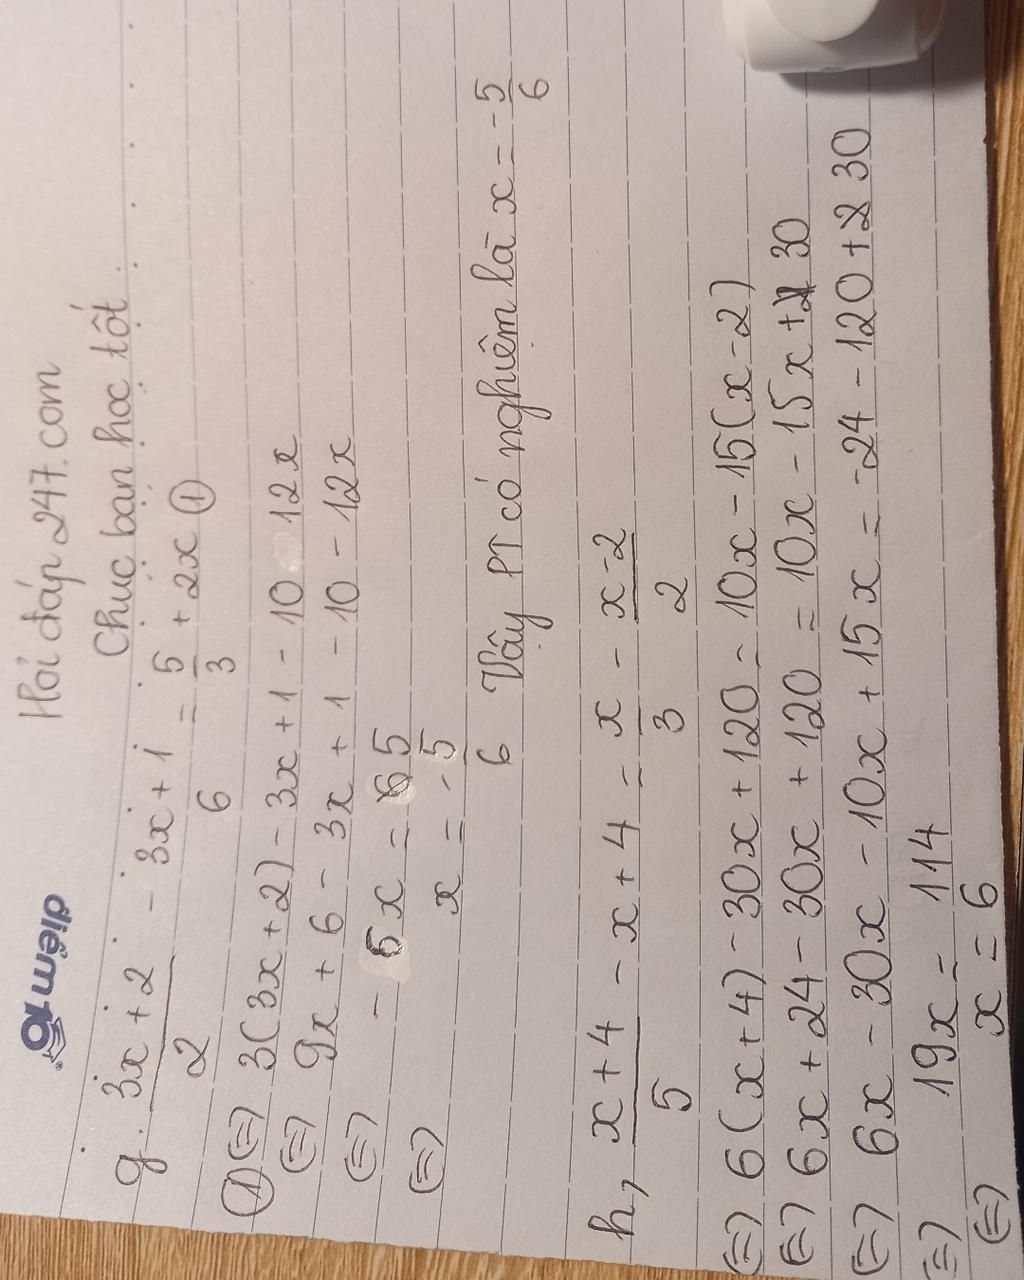 điểm 10
Hỏi đáp 247.com
Chúc bạn học tốt.
g. 3x+2/2 - 3x+1/6 = 5/3 + 2x ①
① (=) 3(3x+2) - 3x+1 - 10 12x
(=) 9x + 6 - 3x + 1 - 10 - 12x
(=) - 6x = 5
(=) x = - 5/6
Vậy PT có nghiệm là x = - 5/6
h, x+4/5 - x + 4 = x/3 - x-2/2
(=) 6(x+4) - 30x + 120 = 10x - 15(x-2)
(=) 6x + 24 - 30x + 120 = 10x - 15x + 30
(=) 6x - 30x - 10x + 15x = -24 - 120 + 30
(=) 19x = 114
(=) x = 6